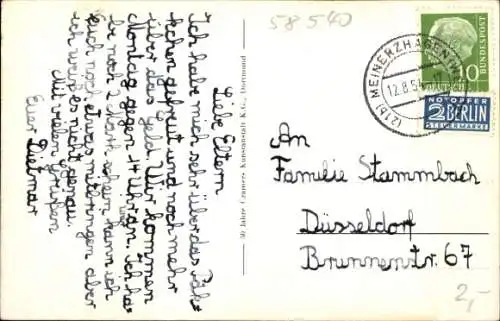 58 540
Liebe Eltern
Ich habe mich sehr über das Päk-
kchen gefreut und noch mehr
über das Geld. Wir kommen
Montag gegen 14 Uhr an. Ich ha-
be noch 2 Mark
euch noch etwas mitbringen aber
ich weiß es nicht genau.
Mit vielen Grüßen
Euer Dietmar
30 Jahre Cramers Kunstanstalt K.G., Dortmund
(21b) MEINERZHAGEN
12.8.5
10
DEUTSCHE
BUNDESPOST
NOTOPFER
2 BERLIN
STEUERMARKE
An
Familie Stammbach
Düsseldorf
Brunnenstr. 67
2,-